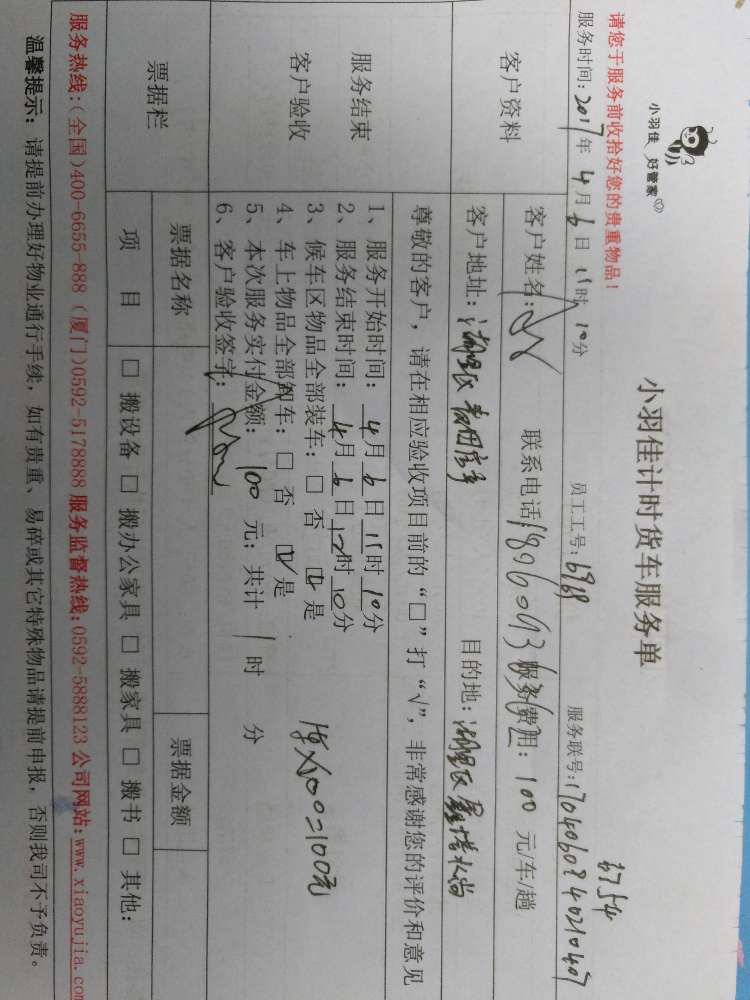 小羽佳 好管家
小羽佳计时货车服务单
请您于服务前收拾好您的贵重物品!
服务时间:2017年4月6日11时10分 员工工号:6968 服务联号:
客户资料
客户姓名: 联系电话 服务费用:100元/车/趟
客户地址:湖里区 目的地:湖里区
尊敬的客户,请在相应验收项目前的“□”打“√”,非常感谢您的评价和意见
服务结束
客户验收
1、服务开始时间:4月6日11时10分
2、服务结束时间:4月6日12时10分
3、候车区物品全部装车:□ 否 ☑ 是
4、车上物品全部卸车:□ 否 ☑ 是
5、本次服务实付金额:100元;共计1时 分
6、客户验收签字:
1车X100=100元
票据栏
票据名称 票据金额
项 目 □ 搬设备 □ 搬办公家具 □ 搬家具 □ 搬书 □ 其他:
服务热线:(全国)400-6655-888 (厦门)0592-5178888 服务监督热线:0592-5888123 公司网站:www.xiaoyujia.com
温馨提示:请提前办理好物业通行手续,如有贵重、易碎或其它特殊物品请提前申报,否则我司不予负责。